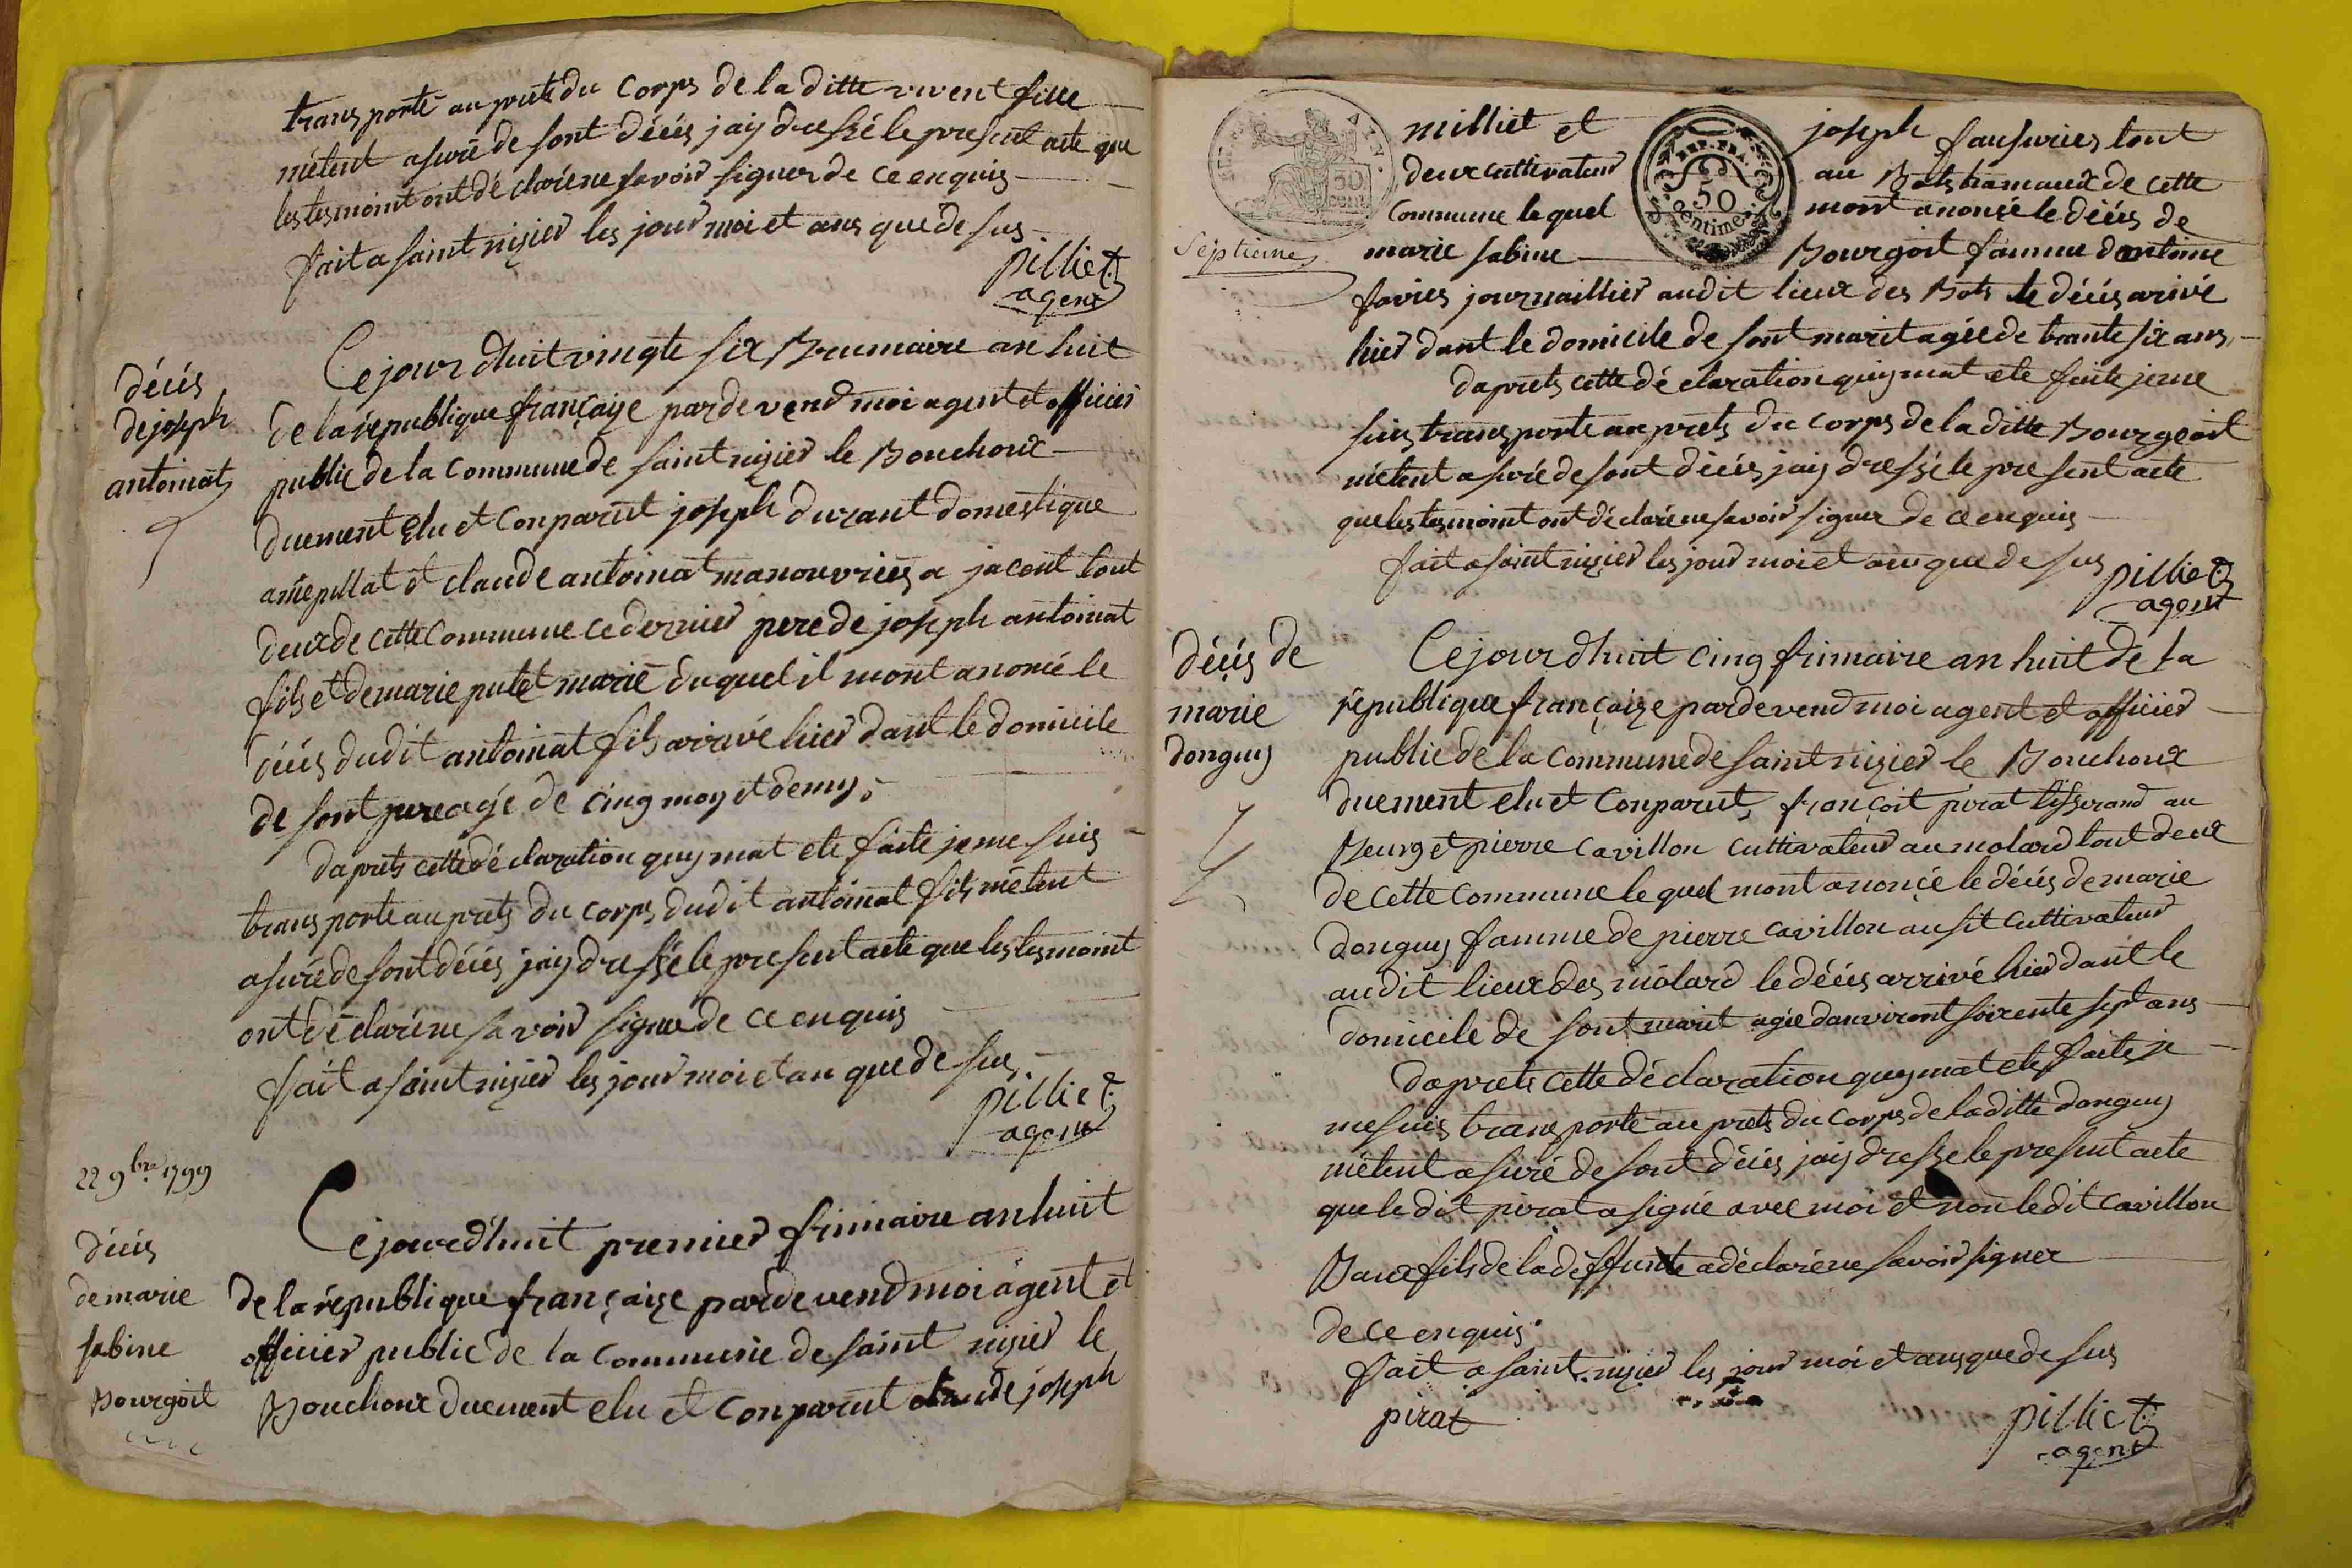 trans porté au prets du Corps de la ditte vivent fille
mètent asuré de sont décés jaij dressé le present acte que
les tesmoint ont dé claré ne savoir signer de ce enquis
fait a saint nizier les jour moi et ans que de sus
pilliet
agent
décés
de joseph
antoinat
Ce jour dhuit vingte six Brumaire an huit
de la république françaize par de vend moi agent et officier
public de la Commune de saint nizier le Bouchoux
duement Elu et Conparut joseph durant domestique
a pillat et claude antoinat manouvrier a jacont tout
deux de cette Commune ce dernier pere de joseph antoinat
fils et de marie putet marié du quel il mont anoncé le
décés dudit antoinat fils arrivé hier dant le domicile
de sont pere agé de cinq moy et demy
daprets cette dé claration quy mat ete faite je me suis
trans porte au prets du corps dudit antoinat fils mètent
asuré de sont décés jaij dressé le present acte que les tesmoint
ont dé claré ne savoir signer de ce enquis
fait a saint nizier les jour moi et an que de sus
pilliet
agent
22 9bre 1799
décés
de marie
sabine
Bourgoit
Ce jour dhuit premier frimaire an huit
de la république françaize par de vend moi agent et
officier public de la Commune de saint nizier le
Bouchoux duement elu et Conparut claude joseph
milliet et joseph tout
deux cultivateur au Bots hamaux de cette
Commune le quel mont anoncé le décés de
septieme
marie sabine Bourgoit famme dantoine
REP. FRA.
50
centimes
favier journaillier audit lieux des Bots le décés arivé
hier dant le domicile de sont marit agée de trante six ans
daprets cette dé claration quy mat ete faite je me
suis trans porte au prets du corps de la ditte Bourgeoit
mètent asuré de sont décés jaij dressé le present acte
que les tesmoint ont dé claré ne savoir signer de ce enquis
fait a saint nizier les jour moi et ans que de sus
pilliet
agent
décés de
marie
donguy
Ce jour dhuit cinq frimaire an huit de la
république françaize par de vend moi agent et officier
public de la Commune de saint nizier le Bouchoux
duement elu et Conparut françoit pirat tisserand au
Bourg et pierre cavillon cultivateur au molard tout deux
de cette Commune le quel mont anoncé le décés de marie
donguy famme de pierre cavillon ausit cultivateur
audit lieux des molard le décés arrivé hier dant le
domicile de sont marit agée danviront soixente sept ans
daprets cette dé claration quy mat ete faite je
me suis trans porté au prets du Corps de la ditte donguy
mètent asuré de sont décés jaij dressé le present acte
que le dit pirat a signé avec moi et non le dit cavillon
Baux fils de la deffunte a déclaré ne savoir signer
de ce enquis
fait a saint nizier les jour moi et ans que de sus
pirat
pilliet
agent